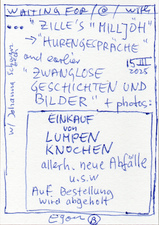 WAITING FOR /@/ WITH
... "ZILLE'S "MILLJÖH"
→ "HURENGESPRÄCHE"
and earlier
15 III
2025
"ZWANGLOSE
GESCHICHTEN UND
BILDER" + photos:
EINKAUF
VON
LUMPEN
KNOCHEN
allerh. neue Abfälle
u.s.w
Auf Bestellung
wird abgeholt